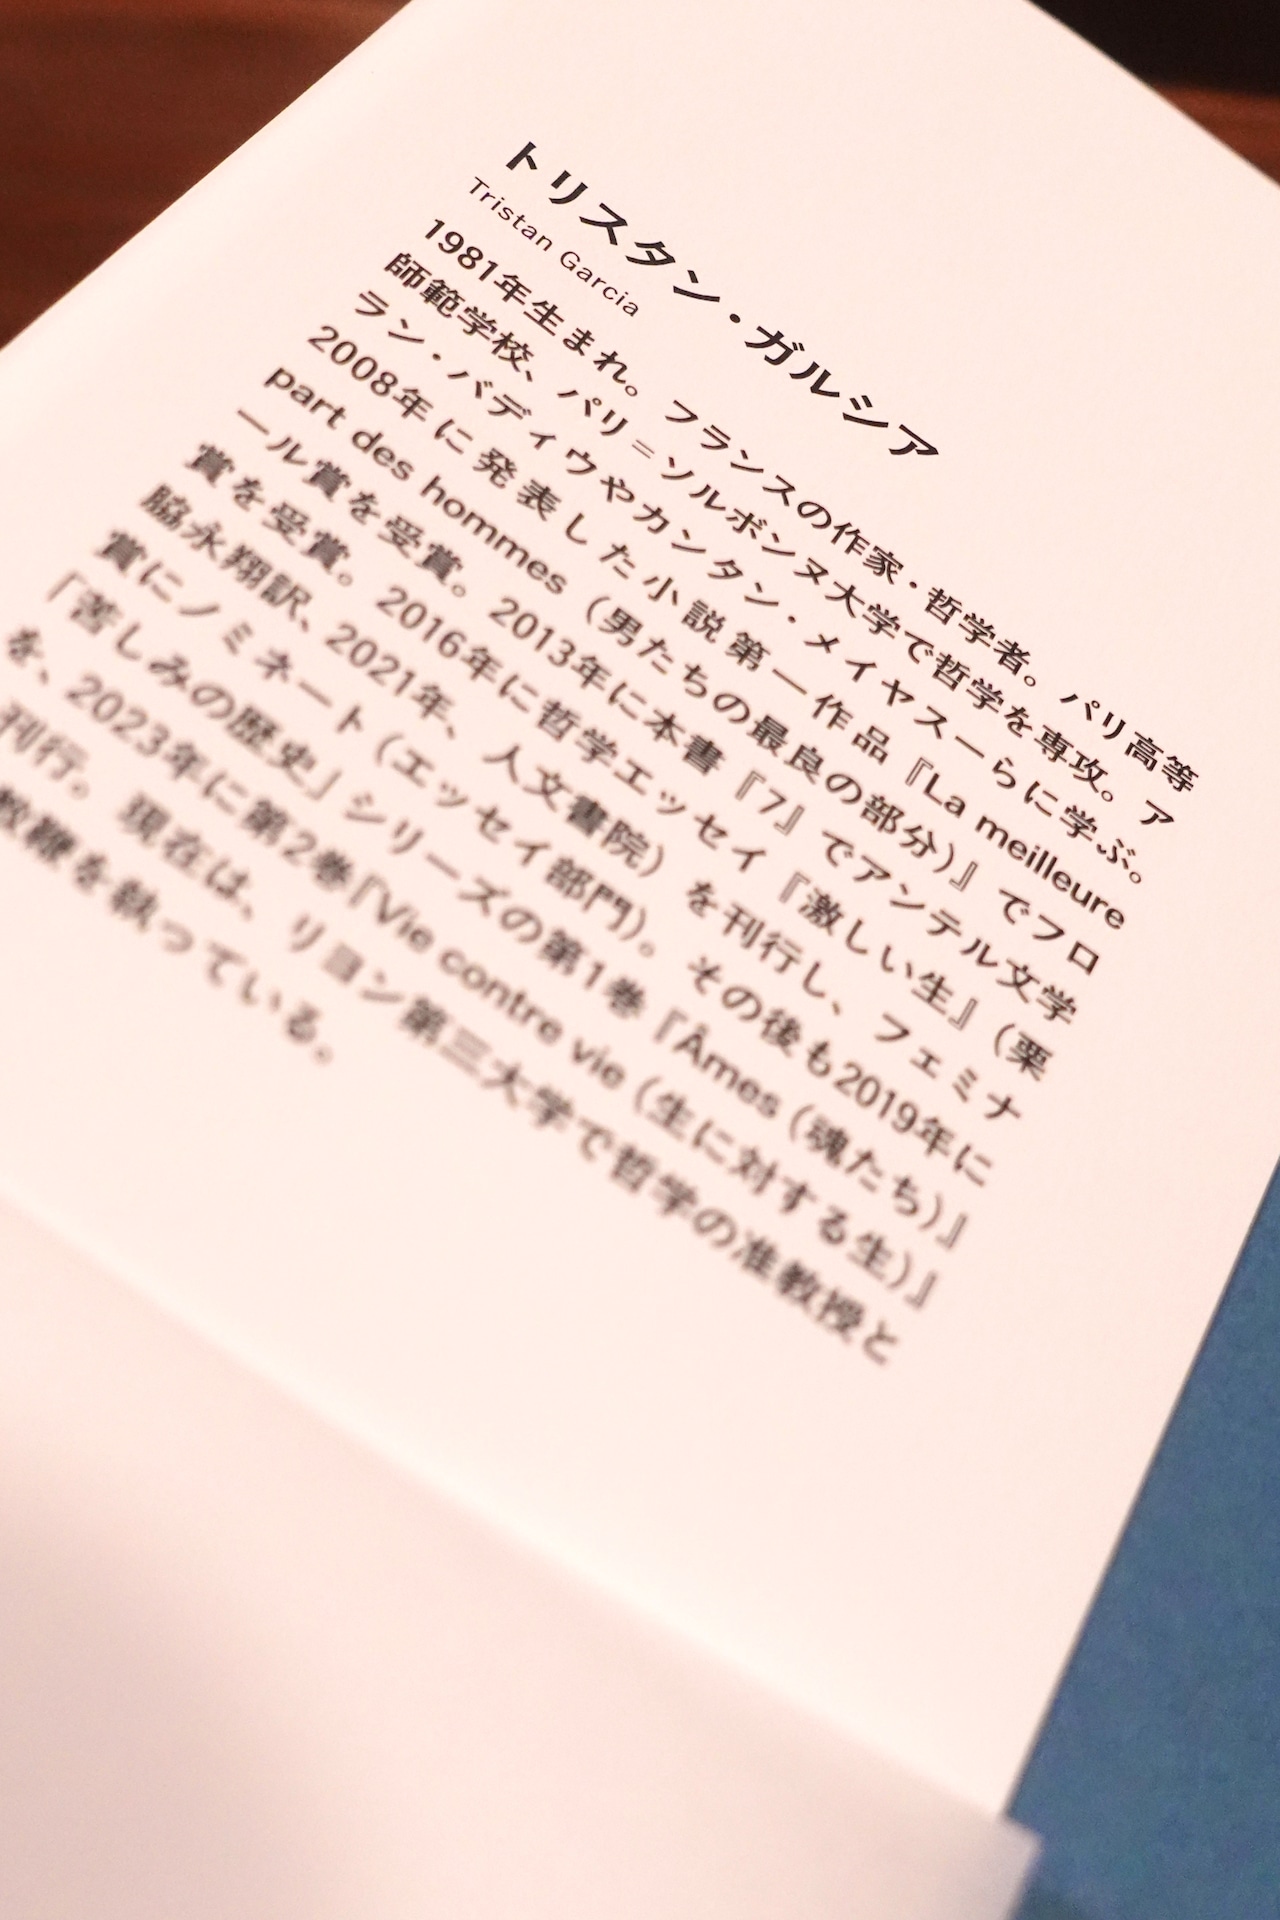 トリスタン・ガルシア
Tristan Garcia
1981年生まれ。フランスの作家・哲学者。パリ高等
師範学校、パリ=ソルボンヌ大学で哲学を専攻。ア
ラン・バディウやカンタン・メイヤスーらに学ぶ。
2008年に発表した小説第一作品『La meilleure
part des hommes（男たちの最良の部分）』でフロ
ール賞を受賞。2013年に本書『7』でアンテル文学
賞を受賞。2016年に哲学エッセイ『激しい生』（栗
脇永翔訳、2021年、人文書院）を刊行し、フェミナ
賞にノミネート（エッセイ部門）。その後も2019年に
「苦しみの歴史」シリーズの第1巻『Âmes（魂たち）』
を、2023年に第2巻『Vie contre vie（生に対する生）』
刊行。現在は、リヨン第三大学で哲学の准教授と
教鞭を執っている。